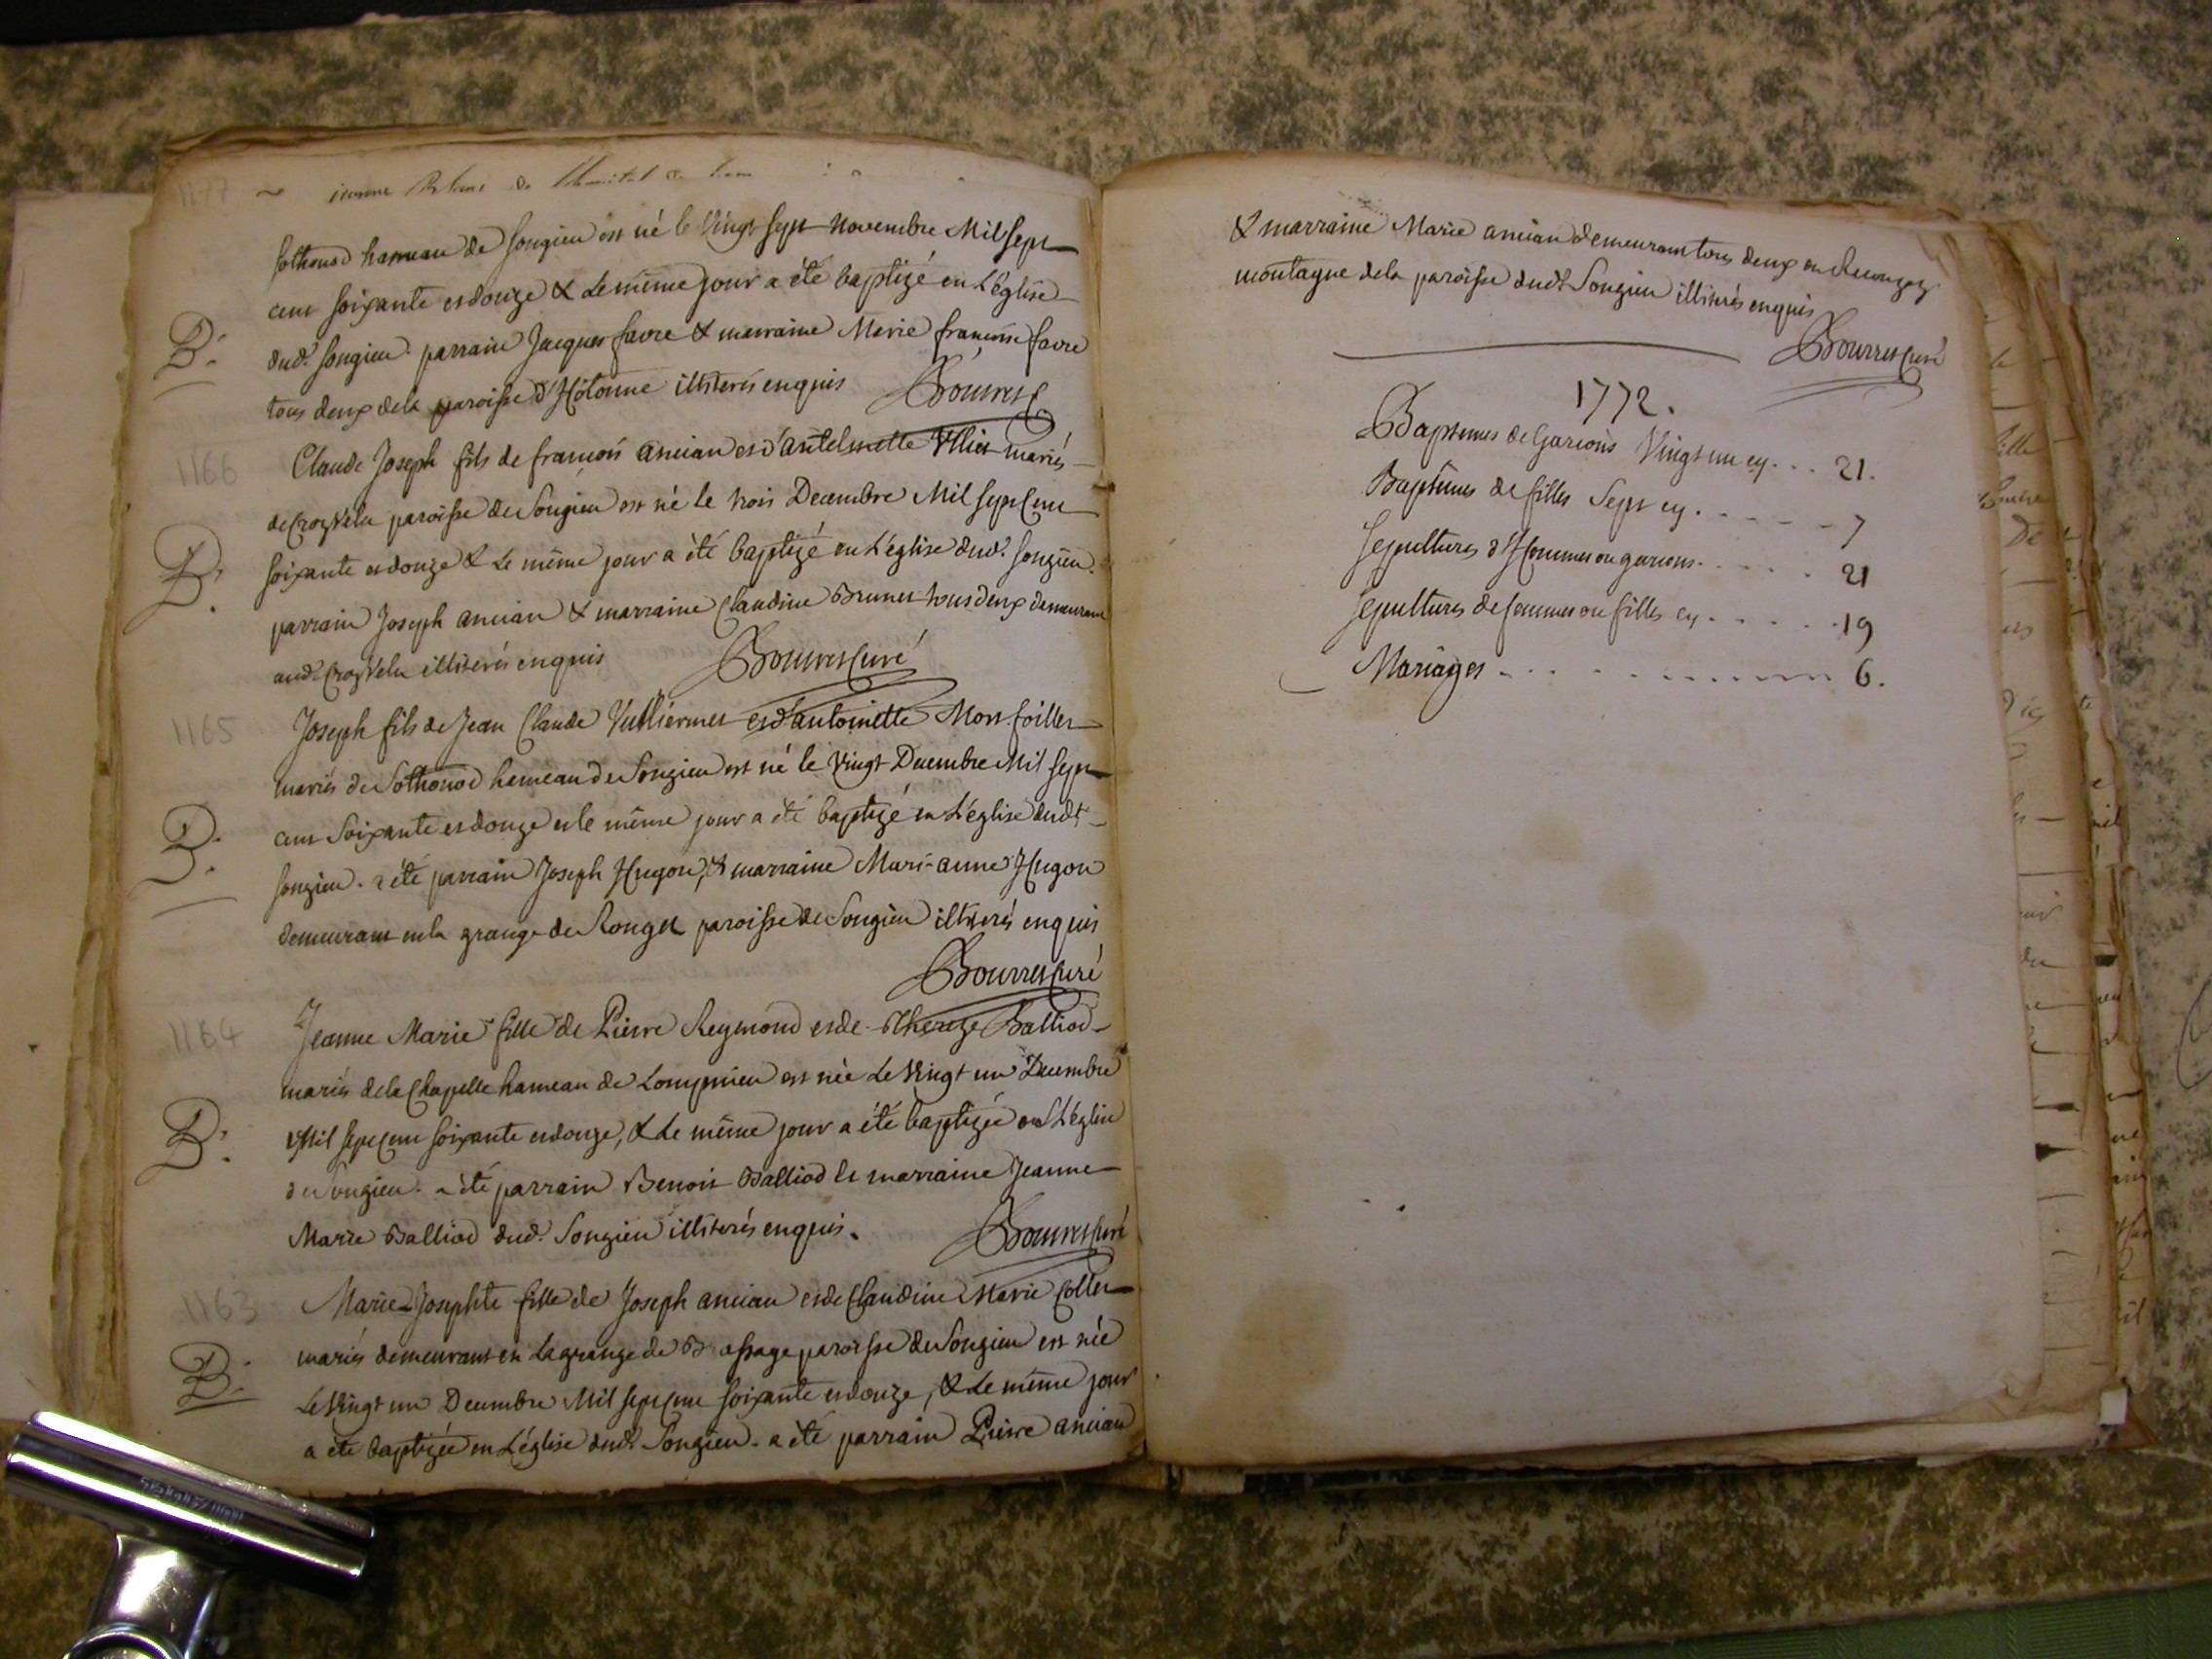 1177
jeanne
Sothonod hameau de Songieu est né le vingt sept novembre Mil sept
cent soixante et douze & le même jour a été baptizé en L'église
dud. Songieu. parrain Jacques favre & marraine Marie françoise favre
B.
tous deux de la paroisse d'Hotonne illiterés enquis Bourret C
1166
Claude Joseph fils de françois ancian et d'antelmette mariés
de Crozvelu paroisse de Songieu est né le trois Decembre Mil sept Cent
B.
soixante et douze & Le même jour a été baptizé en L'église dud. Songieu.
parrain Joseph ancian & marraine Claudine Brunet tous deux demeurant
aud. Crozvelu illiterés enquis Bourret Curé
1165
Joseph fils de Jean Claude Vulliermet et d'antoinette Montfoillet
mariés de Sothonod hameau de Songieu est né le vingt Decembre Mil sept
B.
cent Soixante et douze et le même jour a été baptizé en L'église dudt
Songieu. a été parrain Joseph Hugon, & marraine Marie-anne Hugon
demeurant en la grange de Rouget paroisse de Songieu illiterés enquis
Bourret Curé
1164
Jeanne Marie fille de Pierre Reymond et de Thereze Balliod
mariés de la Chapelle hameau de Lompnieu est née Le vingt un Decembre
B.
Mil sept cent soixante et douze, & Le même jour a été baptizée en L'église
de Songieu. a été parrain Benoit Balliod et marraine Jeanne
Marie Balliod dud. Songieu illiterés enquis. Bourret Curé
1163
Marie Josephte fille de Joseph ancian et de Claudine Marie Collet
mariés demeurant en La grange de paroisse de Songieu est née
B.
Le vingt un Decembre Mil sept cent soixante et douze, & Le même jour
a été baptizée en L'église dudt Songieu. a été parrain Pierre ancian
& marraine Marie ancian demeurant tous deux en
montagne de la paroisse dudt Songieu illiterés enquis
Bourret Curé
1772.
Baptemes de Garçons Vingt un cy... 21.
Baptêmes de filles Sept cy. - - - - - 7
Sepultures d'Hommes ou garçons. . . . . . 21
Sepultures de femmes ou filles cy . . . . . 19
Mariages - - - - - - - - - - - 6.